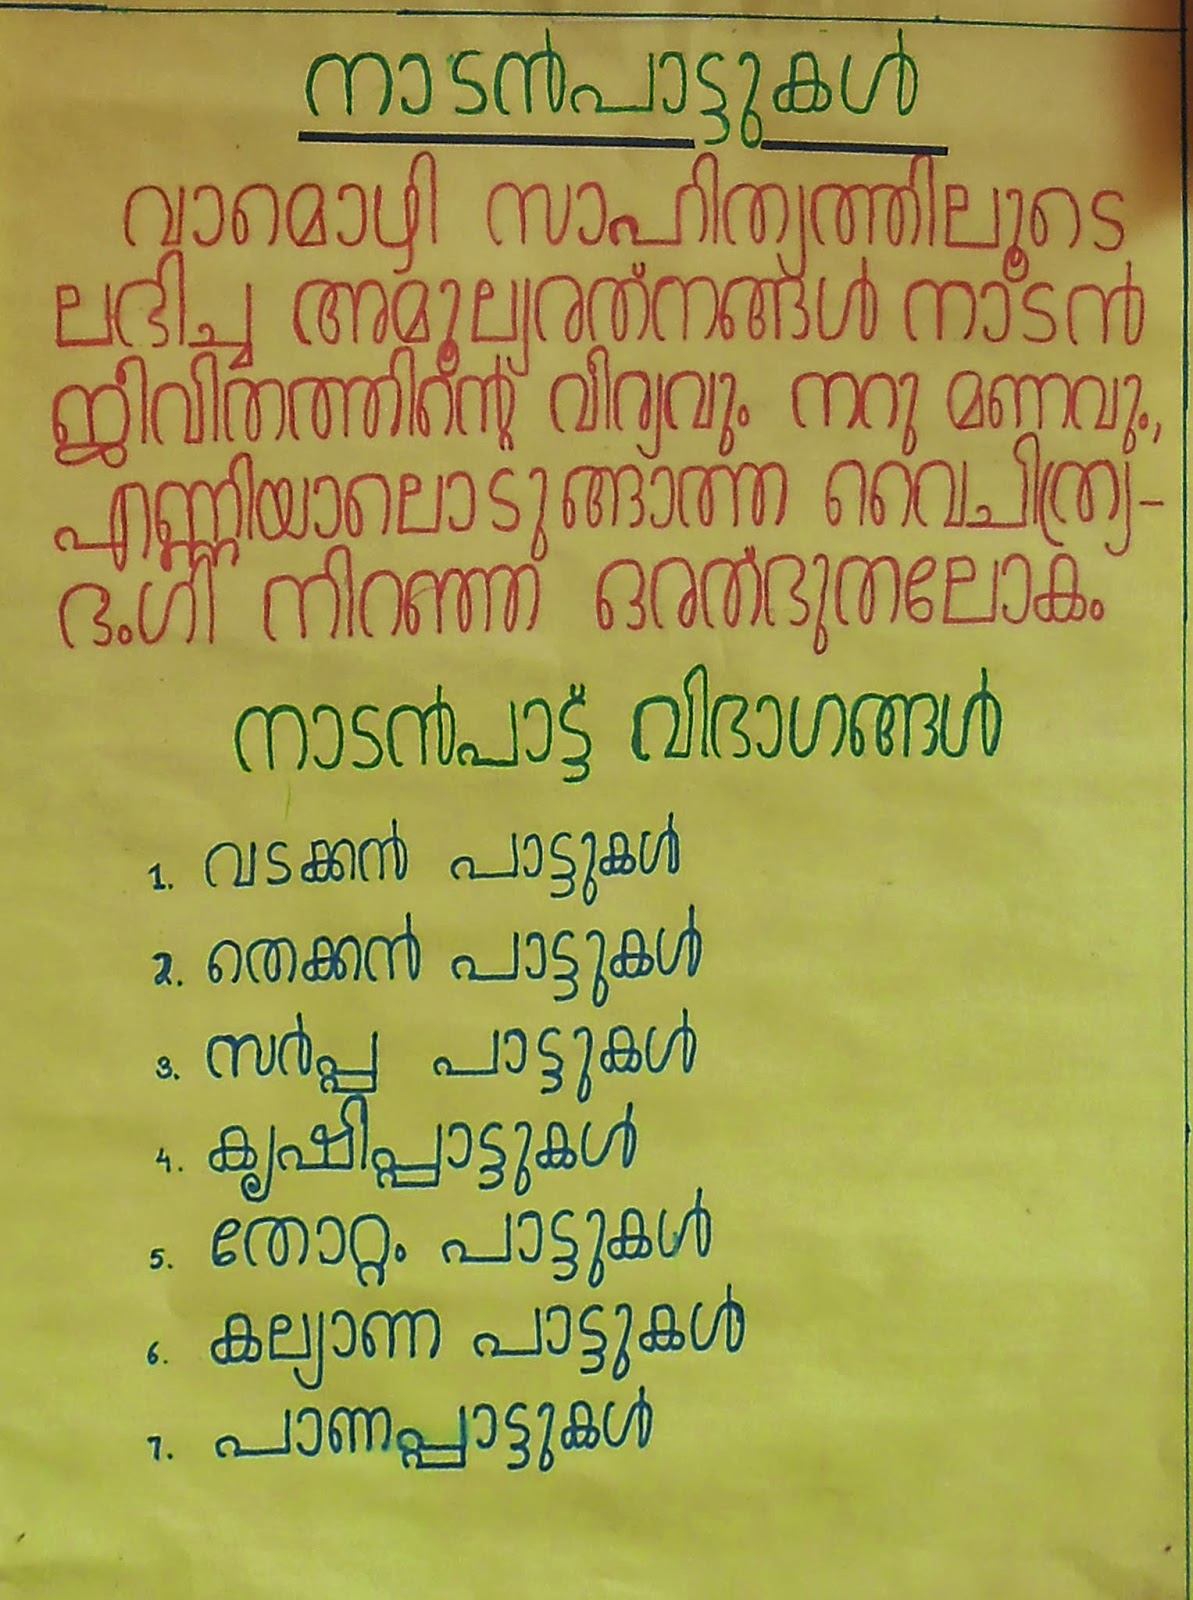 നാടൻപാട്ടുകൾ
വാമൊഴി സാഹിത്യത്തിലൂടെ
ലഭിച്ച അമൂല്യരത്നങ്ങൾ നാടൻ
ജീവിതത്തിന്റെ വീര്യവും നറു മണവും,
എണ്ണിയാലൊടുങ്ങാത്ത വൈചിത്ര്യ-
ഭംഗി നിറഞ്ഞ ഒരത്ഭുതലോകം
നാടൻപാട്ട് വിഭാഗങ്ങൾ
1. വടക്കൻ പാട്ടുകൾ
2. തെക്കൻ പാട്ടുകൾ
3. സർപ്പ പാട്ടുകൾ
4. കൃഷിപ്പാട്ടുകൾ
5. തോറ്റം പാട്ടുകൾ
6. കല്യാണ പാട്ടുകൾ
7. പാണപ്പാട്ടുകൾ